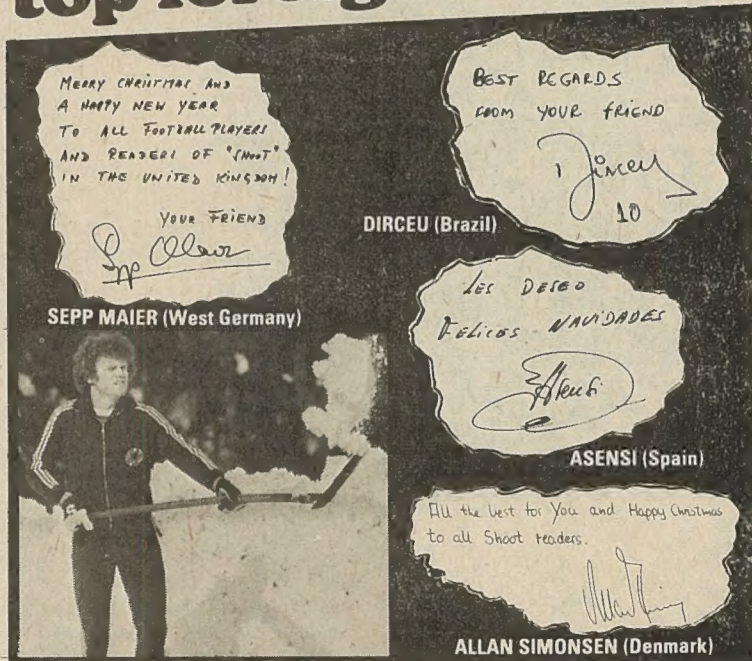 top foreig
MERRY CHRISTMAS AND
A HAPPY NEW YEAR
TO ALL FOOTBALL PLAYERS
AND READERS OF "SHOOT"
IN THE UNITED KINGDOM!
YOUR FRIEND
Sepp Maier
SEPP MAIER (West Germany)
BEST REGARDS
FROM YOUR FRIEND
Dirceu
10
DIRCEU (Brazil)
LES DESEO
FELICES NAVIDADES
Asensi
ASENSI (Spain)
All the best for You and Happy Christmas
to all Shoot readers.
ALLAN SIMONSEN (Denmark)